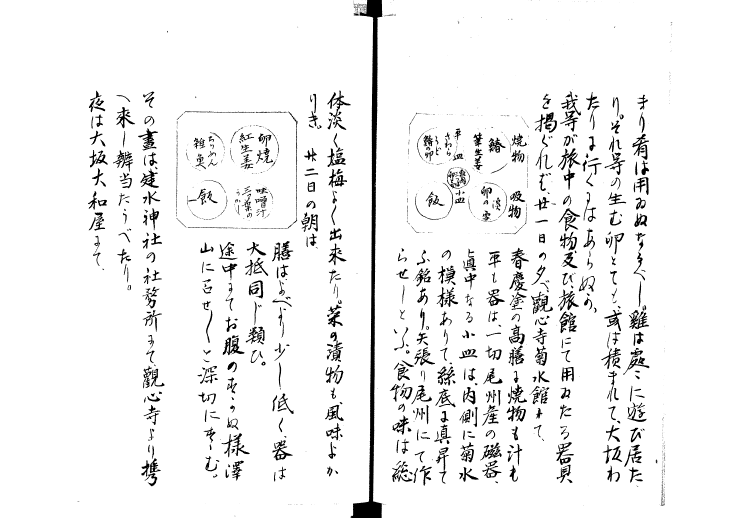 まり肴は用ゐぬなるべし。雞は處々に遊び居た
り。それ等の生む卵とても、或は積まれて、大坂わ
たりに行くにはあらぬか。
我等が旅中の食物及び旅館にて用ゐたる器具
を掲ぐれば、廿一日の夕、觀心寺菊水館にて、
焼物
鰆
筆生姜
平
皿
さわら
うど
鰆の卵
吸物
淡雪
卵の
小皿
飯
春慶塗の高膳に焼物も汁も
平も器は一切尾州産の磁器、
眞中なる小皿は内側に菊水
の模様ありて絲底に眞昇て
ふ銘あり。矢張り尾州にて作
らせしといふ。食物の味は総
体淡く塩梅よく出來たり。菜の漬物も風味よか
りき。廿二日の朝は、
卵焼
紅生姜
雑魚
味噌汁
三ツ葉の
飯
膳はゆふべより少し低く、器は
大抵同じ類ひ。
途中にてお腹のすかぬ様澤
山に召せしと深切にすゝむ。
その晝は建水神社の社務所にて觀心寺より携
へ來し辨当たうべたり。
夜は大坂大和屋にて、